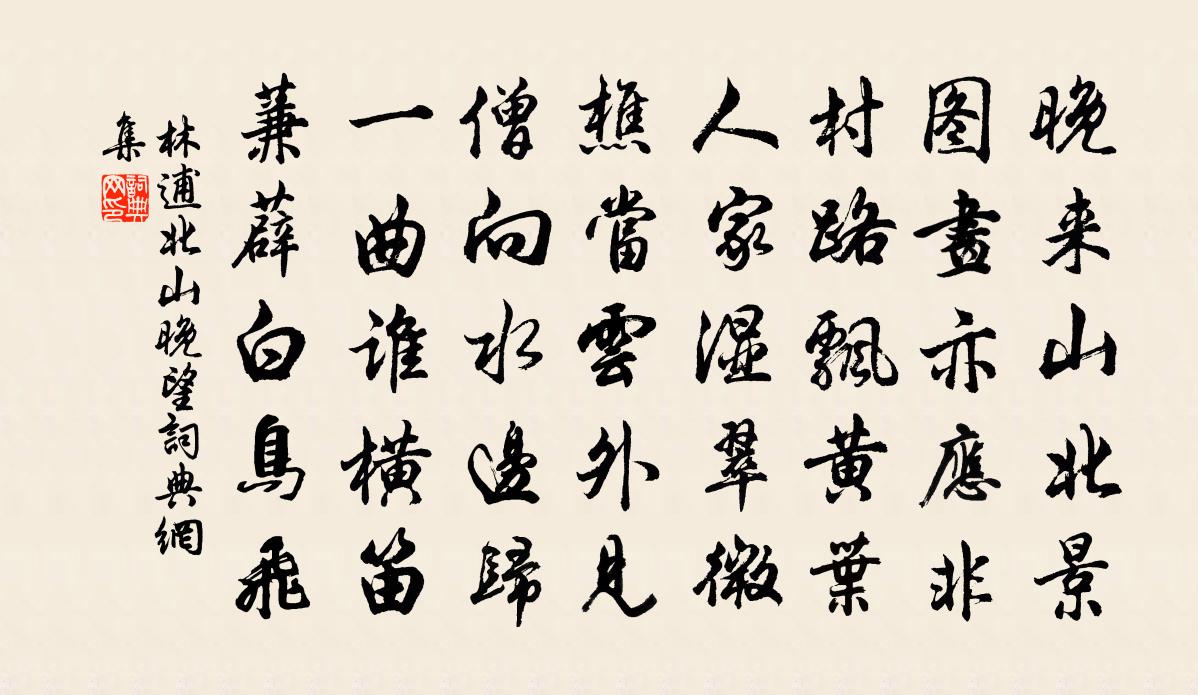 晚来山北景
图畫亦應非
村路飄黃葉
人家湿翠微
樵當雲外見
僧向水邊歸
一曲誰橫笛
蒹薜白鳥飛
林逋北山晚望詞典網
集
詞典
网印